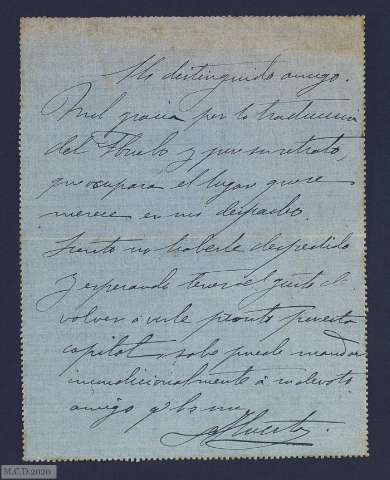 Mi distinguido amigo.
Mil gracias por la traducción
del Abuelo y por su retrato,
que ocupará el lugar que se
merece en mi despacho.
Siento no haberle despedido
y esperando tener el gusto de
volver á verle pronto por esta
capital, sabe puede mandar
incondicionalmente á su devoto
amigo q b s m
M.C.D. 2020